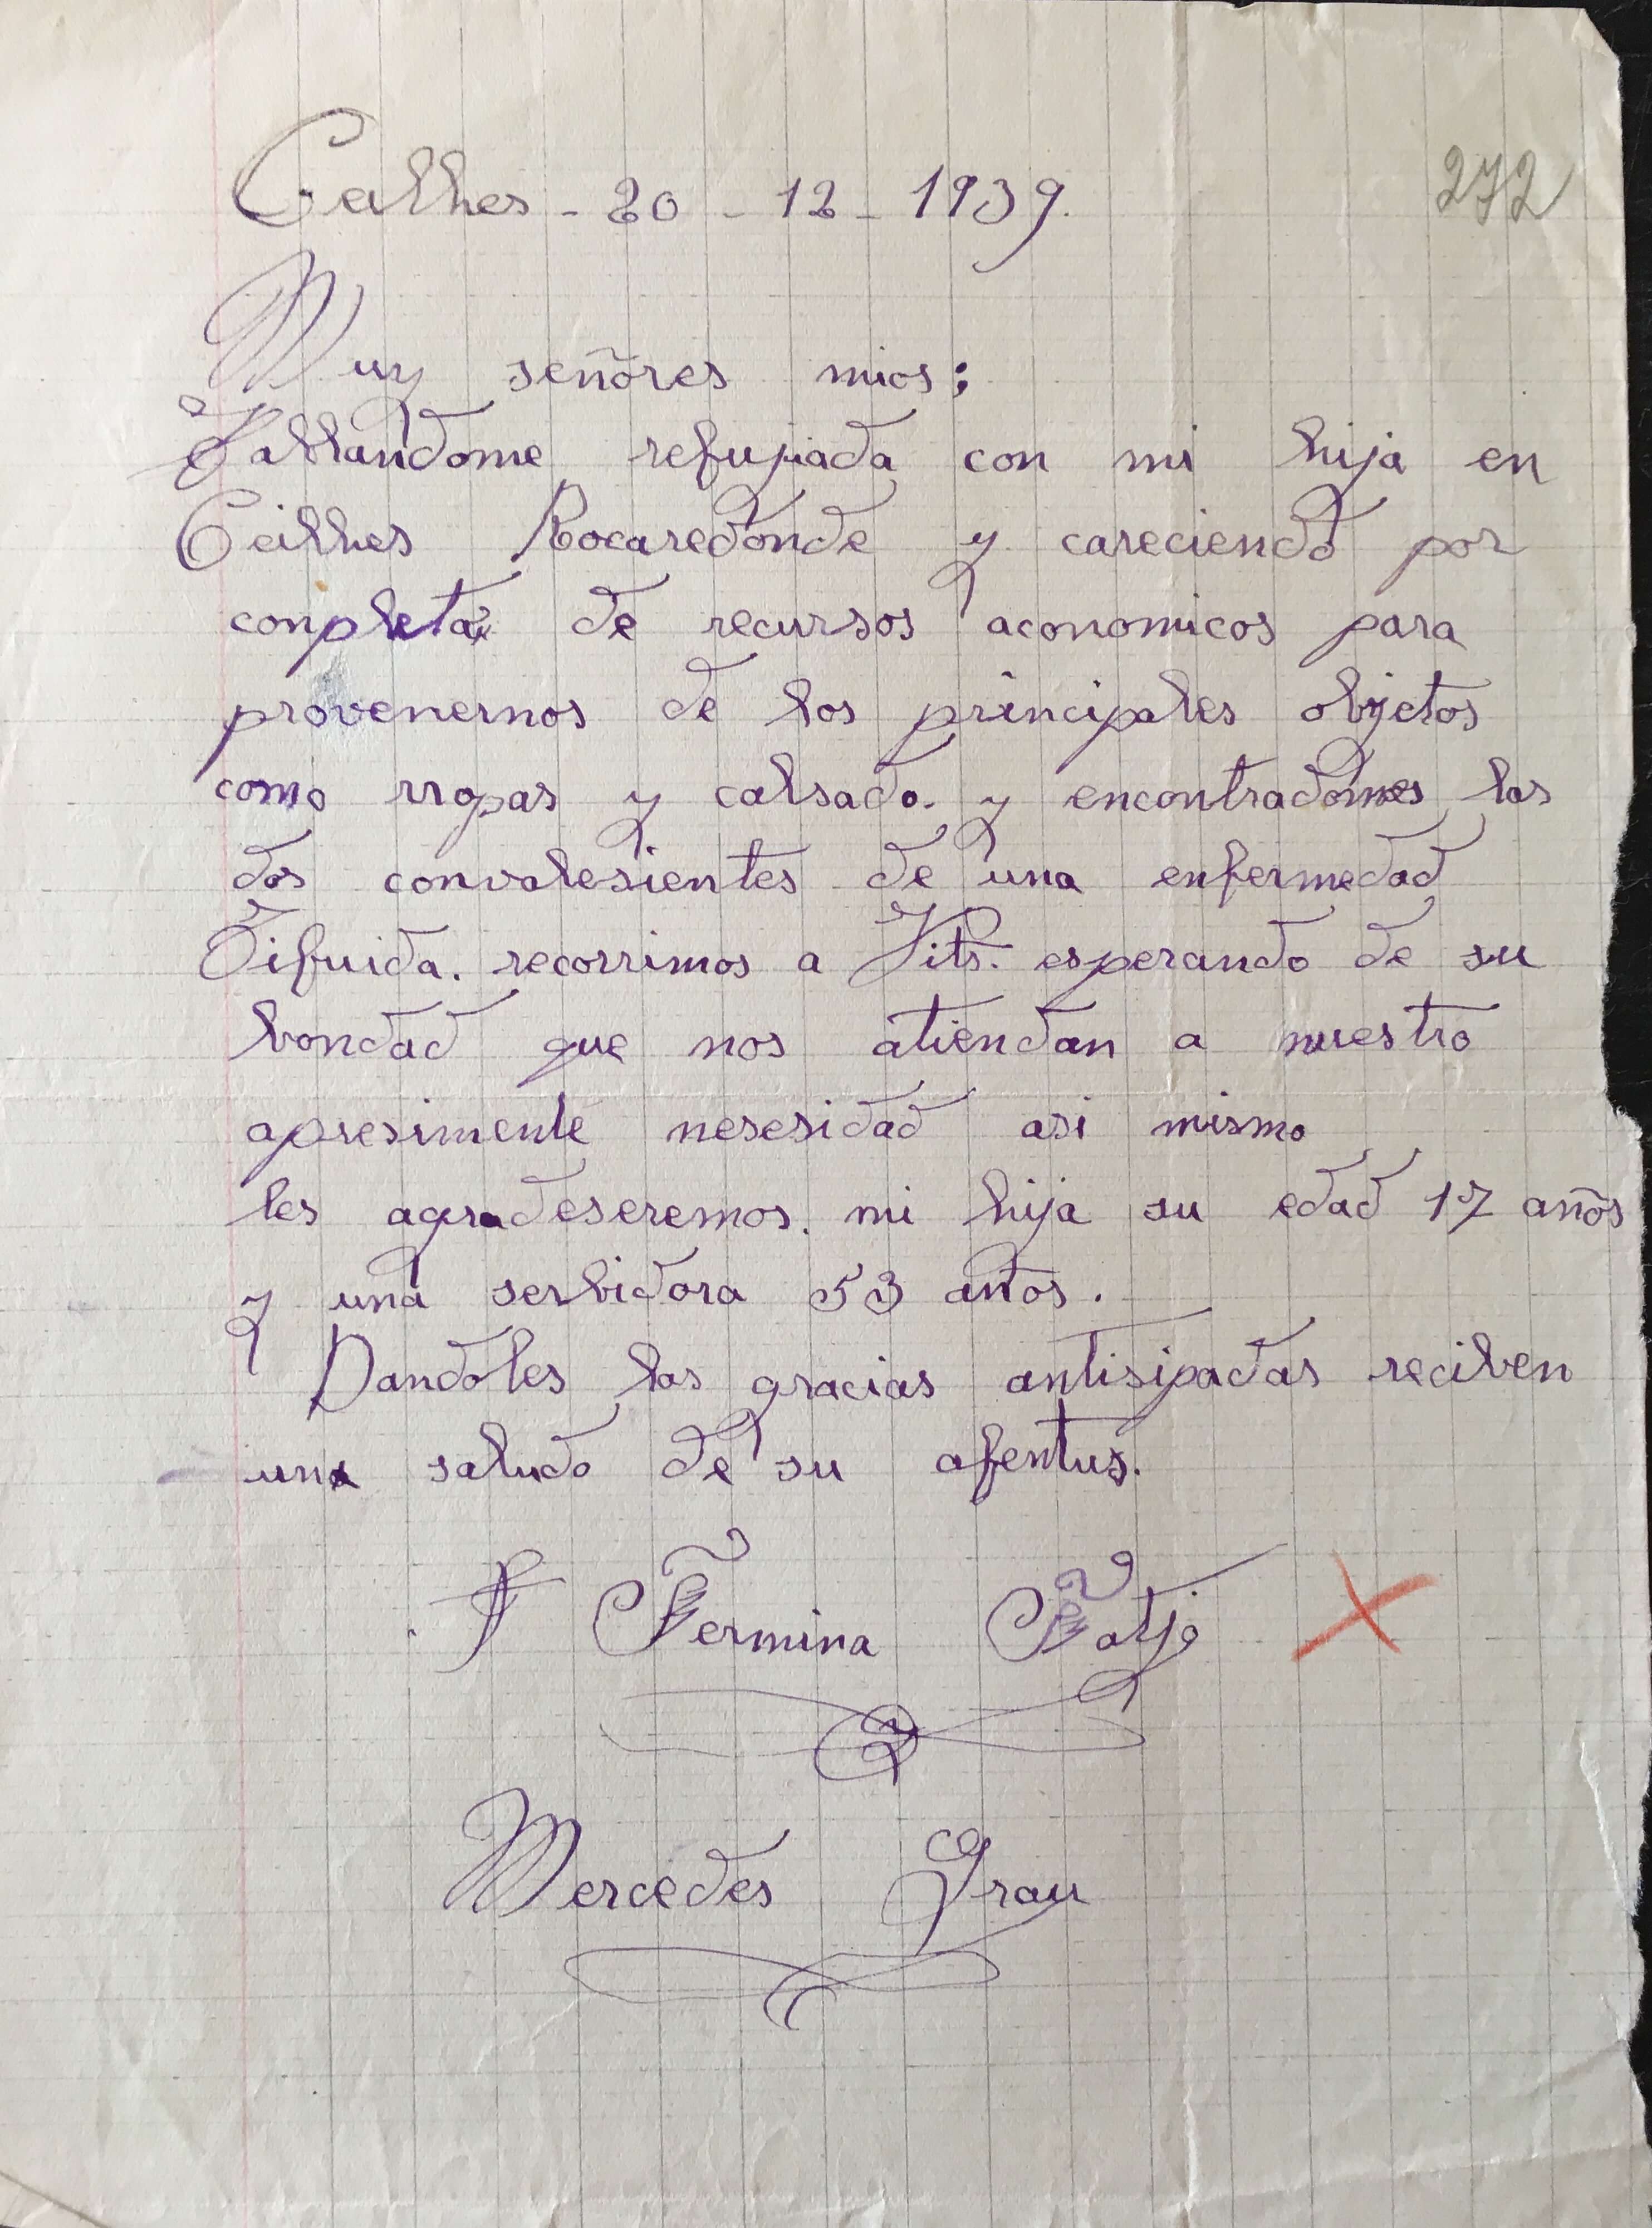 Ceilhes - 20 - 12 - 1939.
272
Muy señores mios;
Hallandome refujiada con mi hija en
Ceilhes Rocaredonde y careciendo por
conpleta de recursos aconomicos para
provenernos de los principales objetos
como rropas y calsado. y encontradomes las
dos convalesientes de una enfermedad
Tifuida. recorrimos a Vits. esperando de su
bondad que nos atiendan a nuestro
apresimente nesesidad asi mismo
les agradeseremos. mi hija su edad 17 años
y una serbidora 53 años.
Dandoles las gracias antisipadas reciben
una saludo de su afentus.
Fermina Fatjo
Mercedes Grau